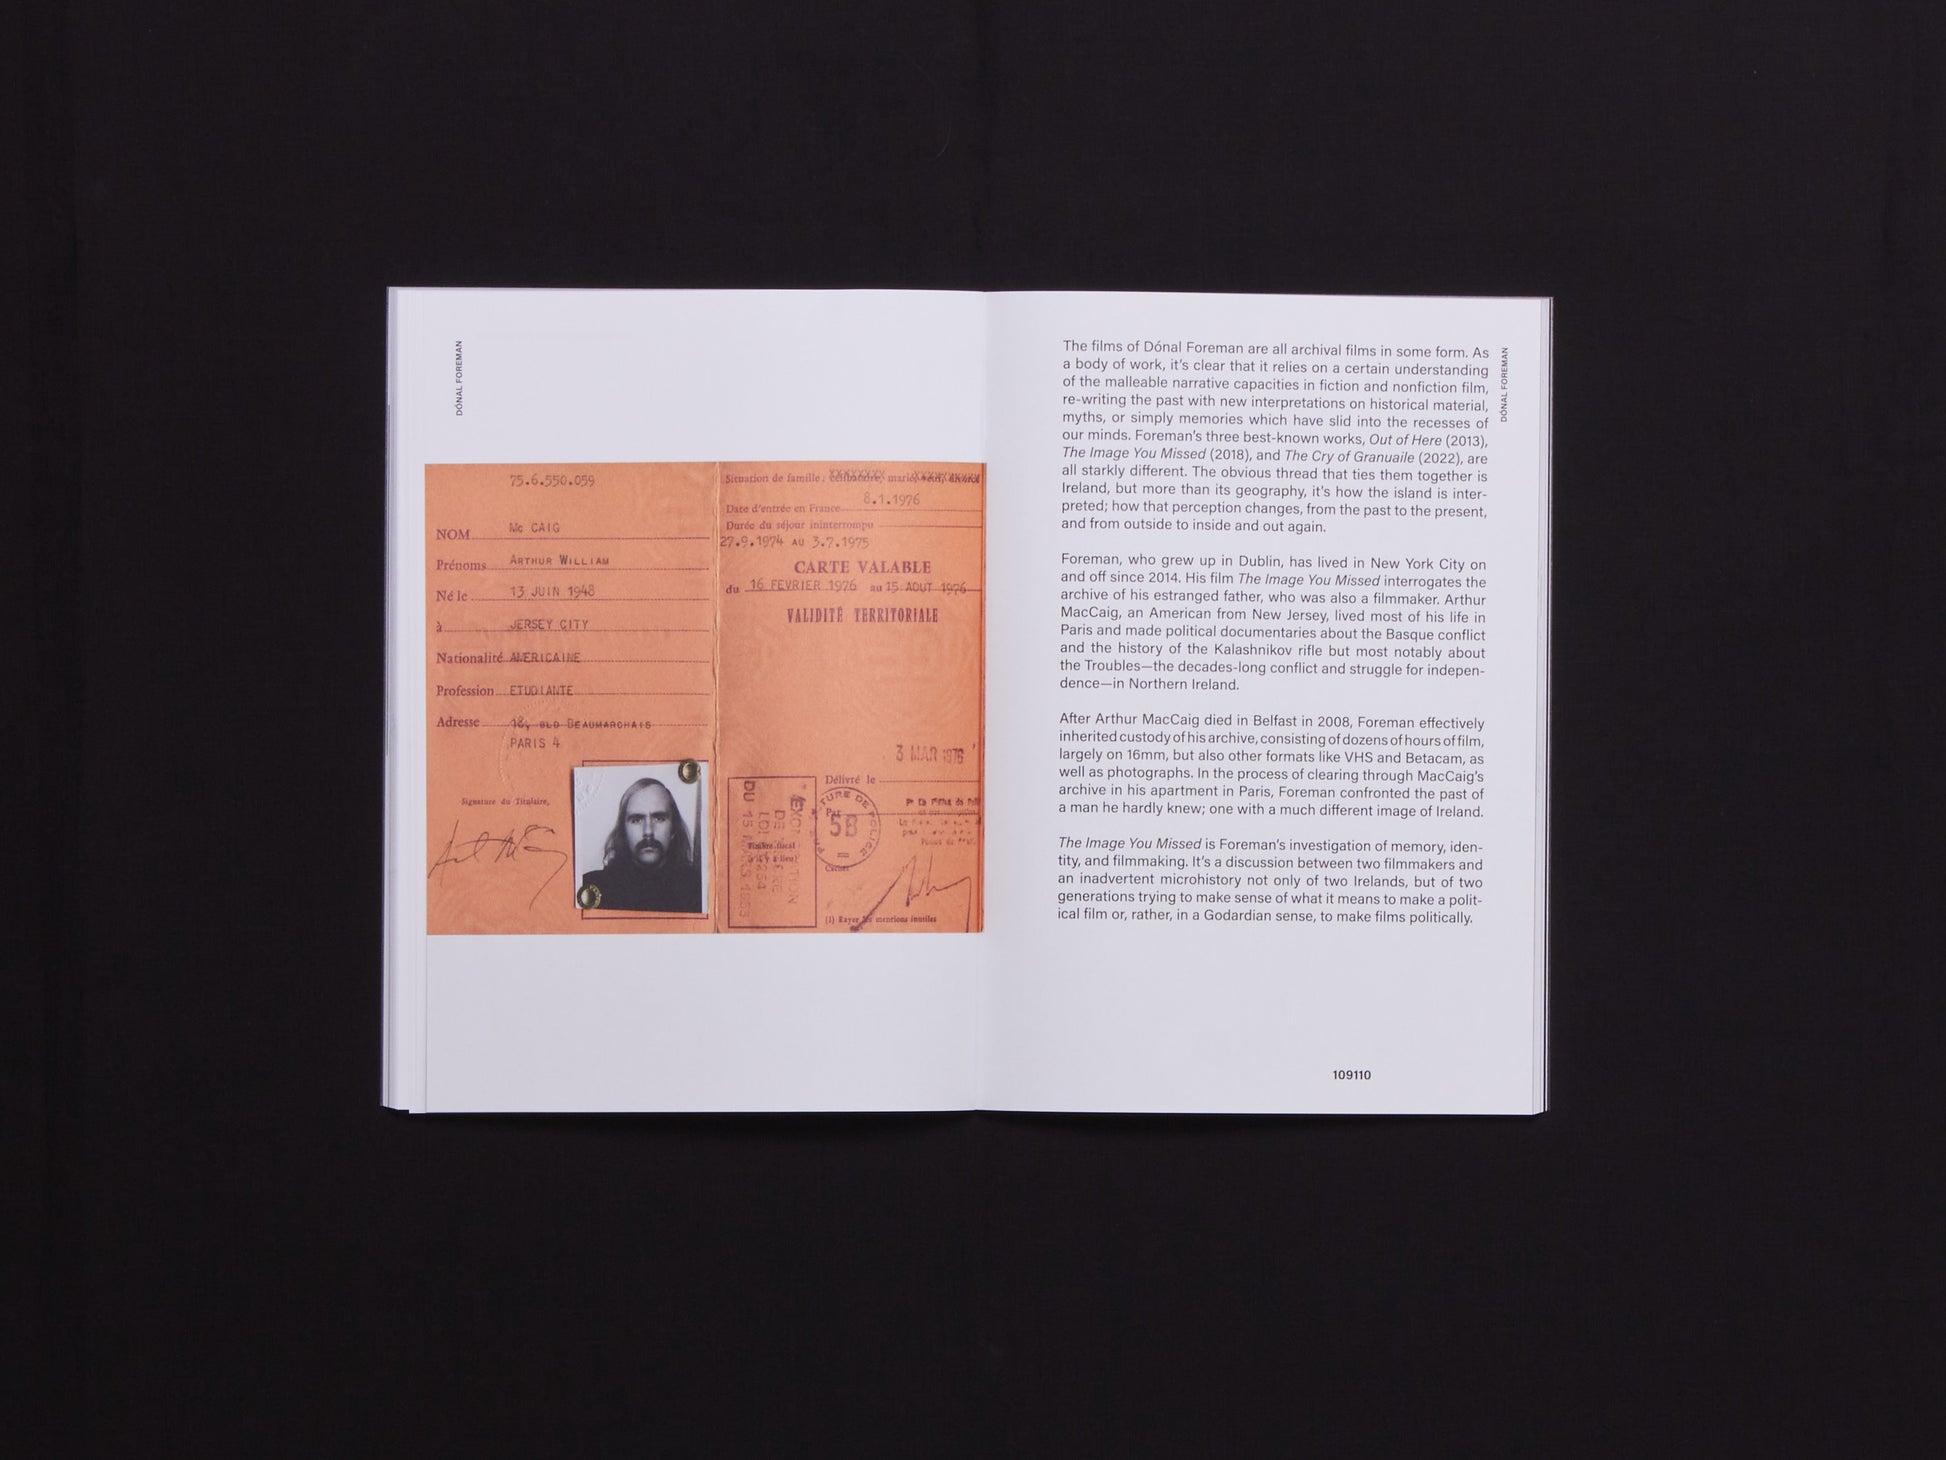 DÓNAL FOREMAN
75.6.550.059
NOM Mc CAIG
Prénoms ARTHUR WILLIAM
Né le 13 JUIN 1948
à JERSEY CITY
Nationalité AMERICAINE
Profession ETUDIANTE
Adresse 18, BLD BEAUMARCHAIS
PARIS 4
Signature du Titulaire,
Situation de famille : célibataire, marié, veuf, divorcé
8.1.1976
Date d'entrée en France
Durée du séjour ininterrompu
27.9.1974 AU 3.7.1975
CARTE VALABLE
du 16 FEVRIER 1976 au 15 AOUT 1976
VALIDITÉ TERRITORIALE
3 MAR 1976
Délivré le
Par
5B
Timbre fiscal
(s'il y a lieu)
Cachet
(1) Rayer les mentions inutiles
The films of Dónal Foreman are all archival films in some form. As
a body of work, it's clear that it relies on a certain understanding
of the malleable narrative capacities in fiction and nonfiction film,
re-writing the past with new interpretations on historical material,
myths, or simply memories which have slid into the recesses of
our minds. Foreman's three best-known works, Out of Here (2013),
The Image You Missed (2018), and The Cry of Granuaile (2022), are
all starkly different. The obvious thread that ties them together is
Ireland, but more than its geography, it's how the island is inter-
preted; how that perception changes, from the past to the present,
and from outside to inside and out again.
Foreman, who grew up in Dublin, has lived in New York City on
and off since 2014. His film The Image You Missed interrogates the
archive of his estranged father, who was also a filmmaker. Arthur
MacCaig, an American from New Jersey, lived most of his life in
Paris and made political documentaries about the Basque conflict
and the history of the Kalashnikov rifle but most notably about
the Troubles—the decades-long conflict and struggle for indepen-
dence—in Northern Ireland.
After Arthur MacCaig died in Belfast in 2008, Foreman effectively
inherited custody of his archive, consisting of dozens of hours of film,
largely on 16mm, but also other formats like VHS and Betacam, as
well as photographs. In the process of clearing through MacCaig's
archive in his apartment in Paris, Foreman confronted the past of
a man he hardly knew; one with a much different image of Ireland.
The Image You Missed is Foreman's investigation of memory, iden-
tity, and filmmaking. It's a discussion between two filmmakers and
an inadvertent microhistory not only of two Irelands, but of two
generations trying to make sense of what it means to make a polit-
ical film or, rather, in a Godardian sense, to make films politically.
DÓNAL FOREMAN
109110